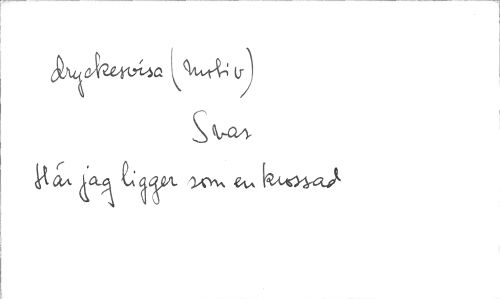 dryckesvisa (motiv)
Svar
Här jag ligger som en krossad